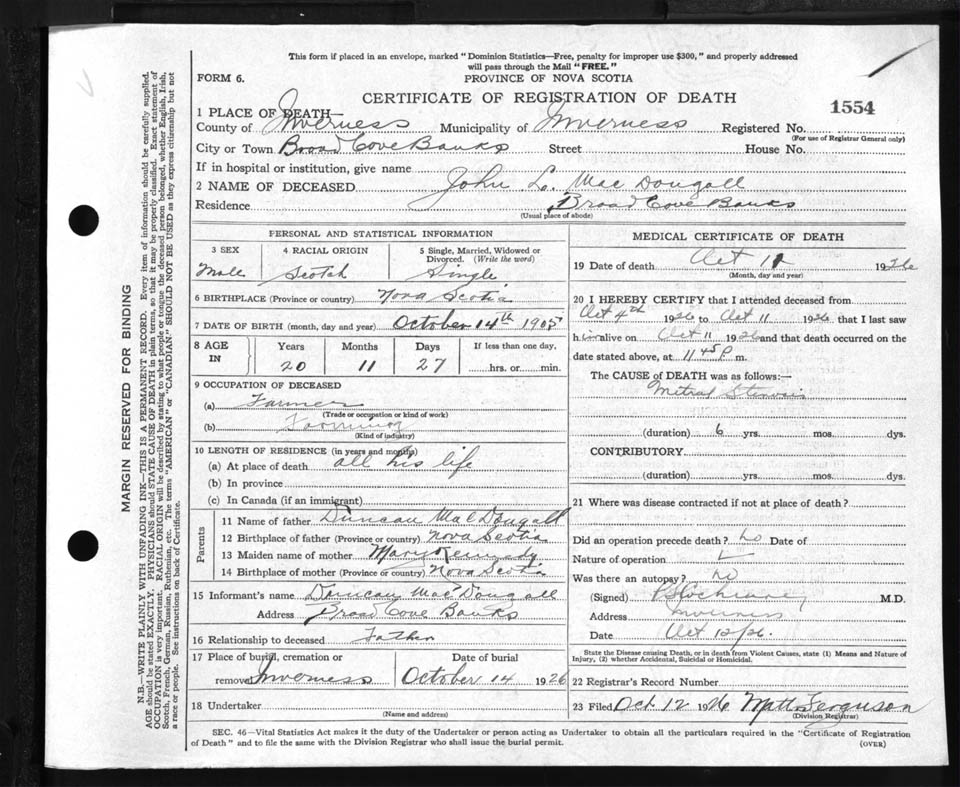 This form if placed in an envelope, marked "Dominion Statistics—Free, penalty for improper use $300," and properly addressed
will pass through the Mail "FREE."
FORM 6.
PROVINCE OF NOVA SCOTIA
CERTIFICATE OF REGISTRATION OF DEATH
1554
1 PLACE OF DEATH—
County of Inverness Municipality of Inverness Registered No.
(For use of Registrar General only)
City or Town Broad Cove Banks Street House No.
If in hospital or institution, give name
2 NAME OF DECEASED John L. MacDougall
Residence Broad Cove Banks
(Usual place of abode)
PERSONAL AND STATISTICAL INFORMATION
3 SEX 4 RACIAL ORIGIN 5 Single, Married, Widowed or
Divorced. (Write the word)
Male Scotch Single
6 BIRTHPLACE (Province or country) Nova Scotia
7 DATE OF BIRTH (month, day and year) October 14th 1905
8 AGE IN Years Months Days If less than one day,
20 11 27 hrs. or min.
9 OCCUPATION OF DECEASED
(a) Farmer
(Trade or occupation or kind of work)
(b) Farming
(Kind of industry)
10 LENGTH OF RESIDENCE (in years and months)
(a) At place of death all his life
(b) In province
(c) In Canada (if an immigrant)
Parents
11 Name of father Duncan MacDougall
12 Birthplace of father (Province or country) Nova Scotia
13 Maiden name of mother Mary Kennedy
14 Birthplace of mother (Province or country) Nova Scotia
15 Informant's name Duncan MacDougall
Address Broad Cove Banks
16 Relationship to deceased Father
17 Place of burial, cremation or Date of burial
removal Inverness October 14 1926
18 Undertaker
(Name and address)
MEDICAL CERTIFICATE OF DEATH
19 Date of death Oct 11 1926
(Month, day and year)
20 I HEREBY CERTIFY that I attended deceased from
Oct 4th 1926 to Oct 11 1926 that I last saw
him alive on Oct 11 1926 and that death occurred on the
date stated above, at 11 45 P m.
The CAUSE of DEATH was as follows:—
Mitral Stenosis
(duration) 6 yrs. mos. dys.
CONTRIBUTORY
(duration) yrs. mos. dys.
21 Where was disease contracted if not at place of death?
Did an operation precede death? no Date of
Nature of operation
Was there an autopsy? no
(Signed) M.D.
Address Inverness
Date Oct 12/26.
State the Disease causing Death, or in death from Violent Causes, state (1) Means and Nature of
Injury, (2) whether Accidental, Suicidal or Homicidal.
22 Registrar's Record Number
23 Filed Oct 12 1926 Matt Ferguson
(Division Registrar)
SEC. 46—Vital Statistics Act makes it the duty of the Undertaker or person acting as Undertaker to obtain all the particulars required in the "Certificate of Registration
of Death" and to file the same with the Division Registrar who shall issue the burial permit.
(OVER)
MARGIN RESERVED FOR BINDING
N.B.—WRITE PLAINLY WITH UNFADING INK—THIS IS A PERMANENT RECORD. Every item of information should be carefully supplied.
AGE should be stated EXACTLY. PHYSICIANS should STATE CAUSE OF DEATH in plain terms, so that it may be properly classified. Exact statement of
OCCUPATION is very important. RACIAL ORIGIN will be described by stating to what people or tongue the deceased person belonged, whether English, Irish,
Scotch, French, German, Russian, Ruthenian, etc. The terms "AMERICAN" or "CANADIAN" SHOULD NOT BE USED as they express citizenship but not
a race or people. See instructions on back of Certificate.